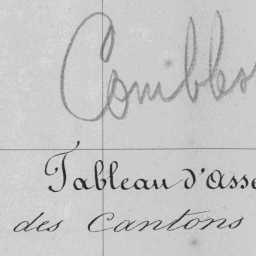 Combło
Tableau d'Asse
des Cantons